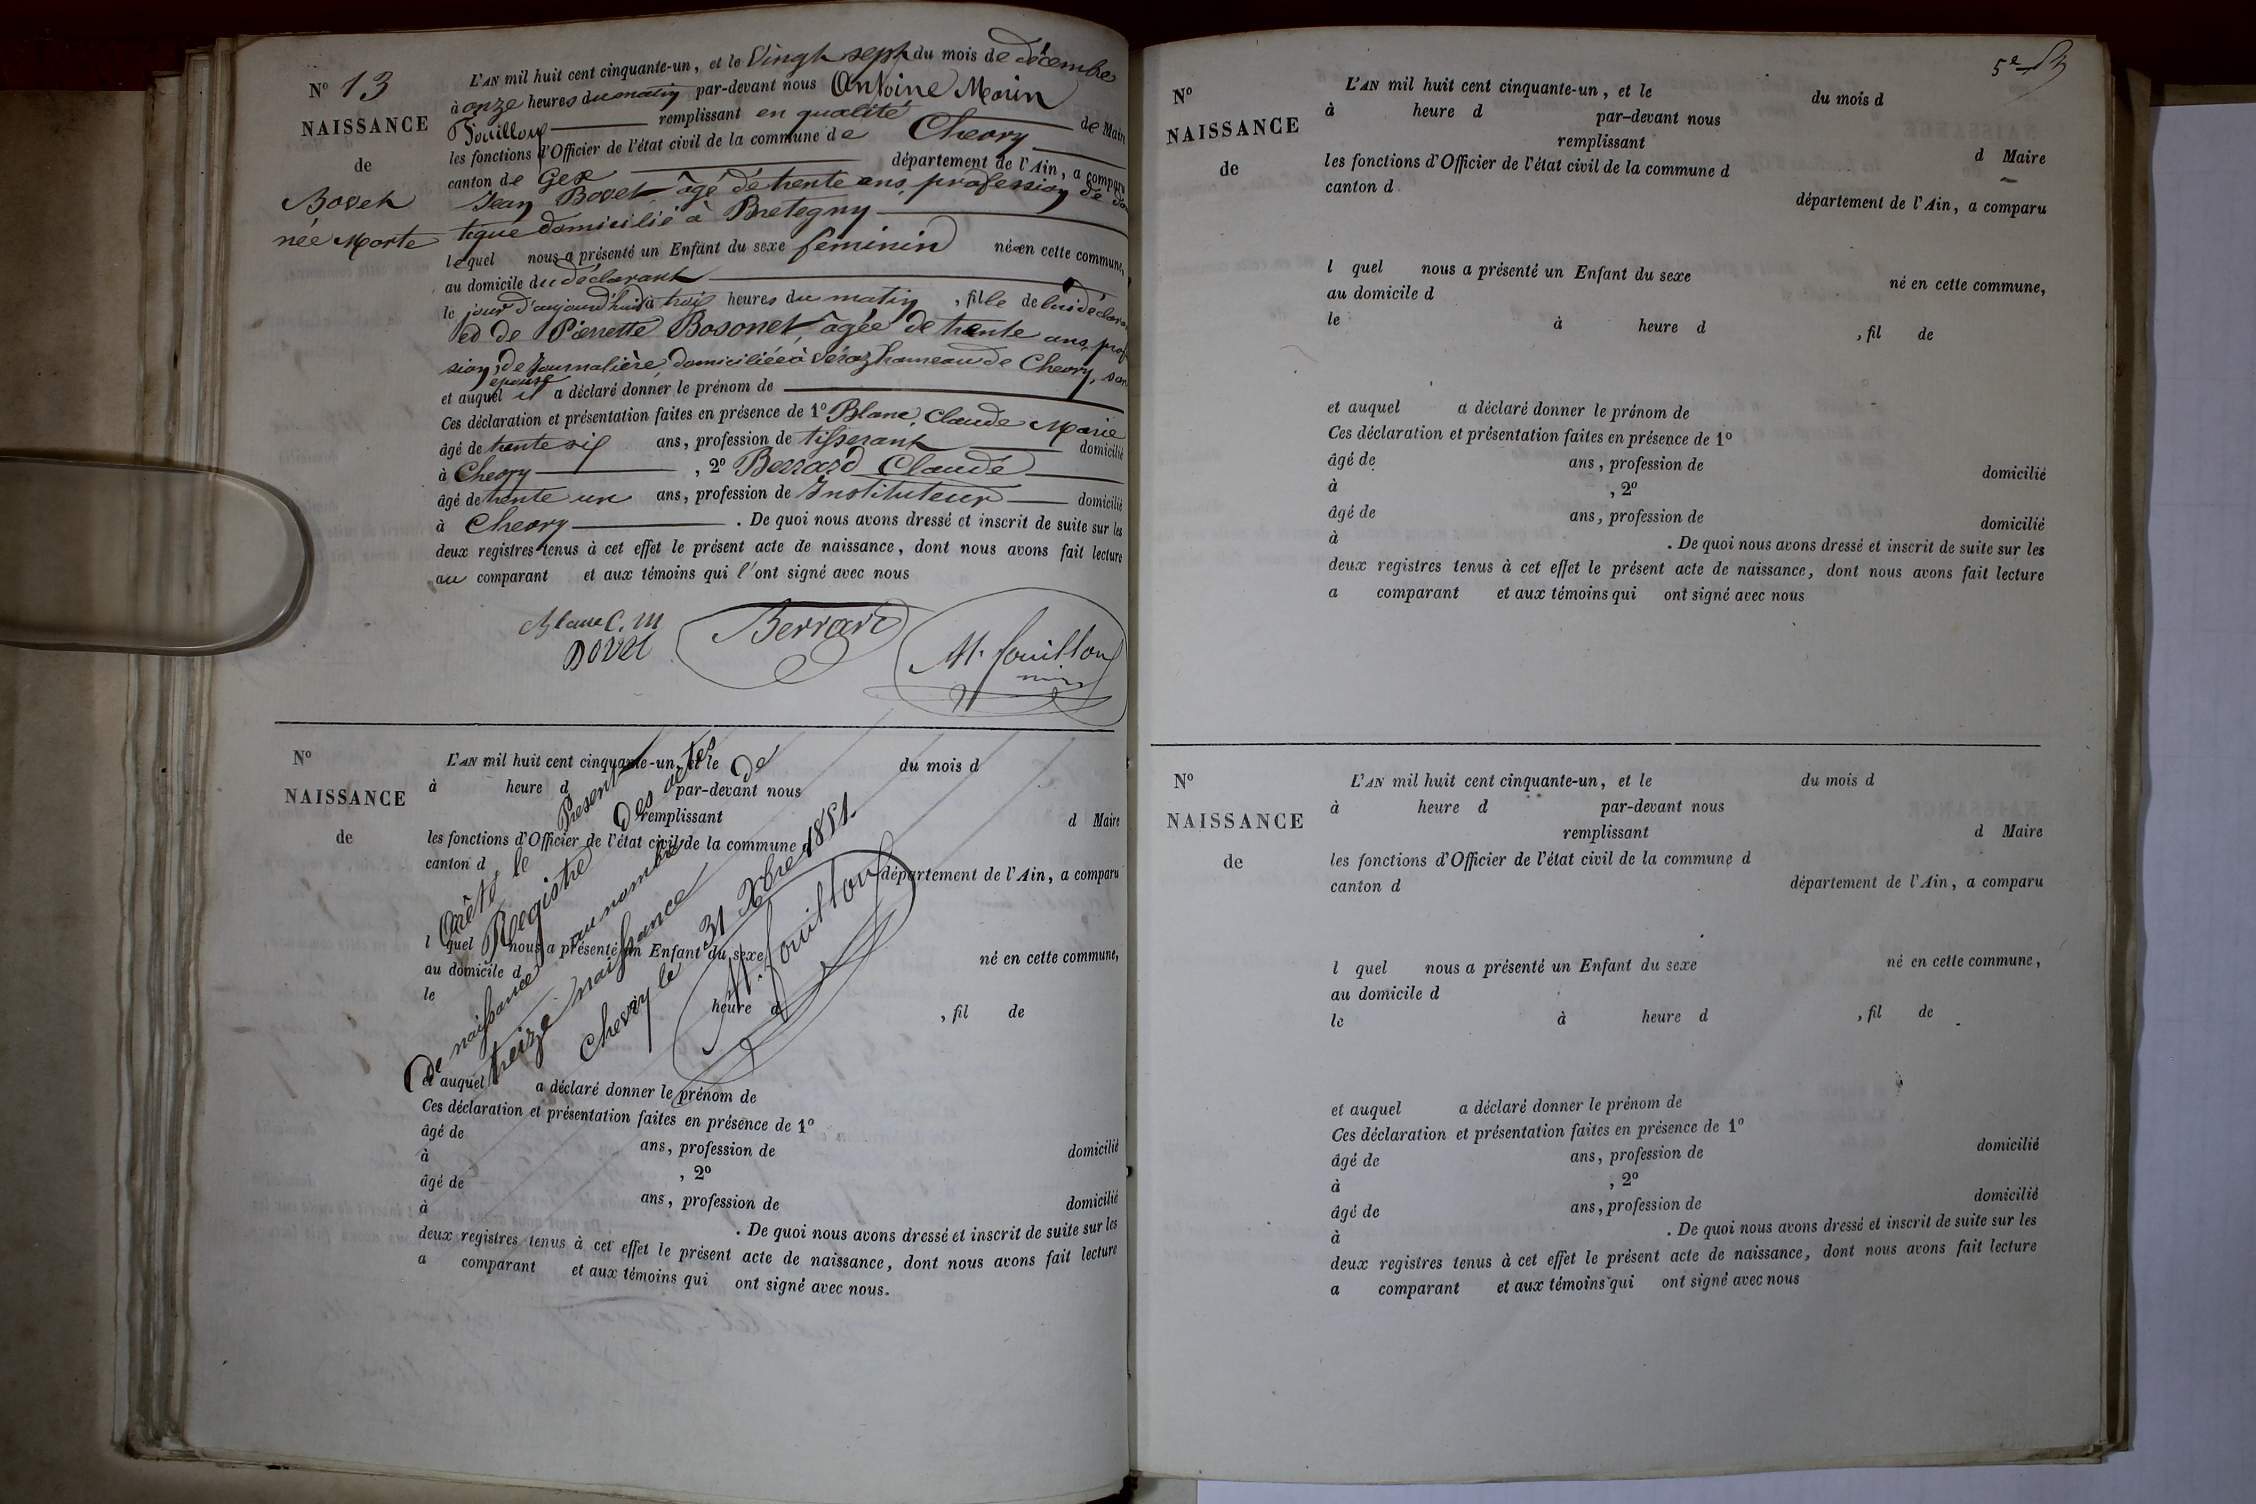 N° 13
NAISSANCE
de
Bovet
née Morte
L'AN mil huit cent cinquante-un, et le Vingt sept du mois de décembre
à onze heures du matin par-devant nous Antoine Marin
Fouilloux remplissant en qualité de Maire
les fonctions d'Officier de l'état civil de la commune de Chevry
canton de Gex département de l'Ain, a comparu
Jean Bovet âgé de trente ans, profession de dom
tique domicilié à Bretegny
lequel nous a présenté un Enfant du sexe féminin née en cette commune,
au domicile du déclarant
le jour d'aujourd'hui à trois heures du matin, fille de lui déclarant
et de Pierrette Bosonet âgée de trente ans, profes
sion de Journalière, domiciliée à Véraz hameau de Chevry, son
épouse
et auquel il a déclaré donner le prénom de
Ces déclaration et présentation faites en présence de 1° Blanc, Claude Marie
âgé de trente six ans, profession de tisserant domicilié
à Chevry, 2° Berrard Claude
âgé de trente un ans, profession de Instituteur domicilié
à Chevry. De quoi nous avons dressé et inscrit de suite sur les
deux registres tenus à cet effet le présent acte de naissance, dont nous avons fait lecture
au comparant et aux témoins qui l'ont signé avec nous
Blanc C. M
BOVET
Berrard
M. fouilloux
N°
NAISSANCE
de
L'AN mil huit cent cinquante-un, et le du mois d
à heure d par-devant nous
remplissant d Maire
les fonctions d'Officier de l'état civil de la commune d
canton d département de l'Ain, a comparu
l quel nous a présenté un Enfant du sexe né en cette commune,
au domicile d
le heure d , fil de
et auquel a déclaré donner le prénom de
Ces déclaration et présentation faites en présence de 1°
âgé de ans, profession de domicilié
à , 2°
âgé de ans, profession de domicilié
à . De quoi nous avons dressé et inscrit de suite sur les
deux registres tenus à cet effet le présent acte de naissance, dont nous avons fait lecture
a comparant et aux témoins qui ont signé avec nous.
Arrêté le Présent
Registre Des actes De
De naissance au nombre de
treize naissance
Chevry le 31 Xbre 1851.
M. fouilloux
5e
N°
NAISSANCE
de
L'AN mil huit cent cinquante-un, et le du mois d
à heure d par-devant nous
remplissant d Maire
les fonctions d'Officier de l'état civil de la commune d
canton d département de l'Ain, a comparu
l quel nous a présenté un Enfant du sexe né en cette commune,
au domicile d
le à heure d , fil de
et auquel a déclaré donner le prénom de
Ces déclaration et présentation faites en présence de 1°
âgé de ans, profession de domicilié
à , 2°
âgé de ans, profession de domicilié
à . De quoi nous avons dressé et inscrit de suite sur les
deux registres tenus à cet effet le présent acte de naissance, dont nous avons fait lecture
a comparant et aux témoins qui ont signé avec nous
N°
NAISSANCE
de
L'AN mil huit cent cinquante-un, et le du mois d
à heure d par-devant nous
remplissant d Maire
les fonctions d'Officier de l'état civil de la commune d
canton d département de l'Ain, a comparu
l quel nous a présenté un Enfant du sexe né en cette commune,
au domicile d
le à heure d , fil de
et auquel a déclaré donner le prénom de
Ces déclaration et présentation faites en présence de 1°
âgé de ans, profession de domicilié
à , 2°
âgé de ans, profession de domicilié
à . De quoi nous avons dressé et inscrit de suite sur les
deux registres tenus à cet effet le présent acte de naissance, dont nous avons fait lecture
a comparant et aux témoins qui ont signé avec nous